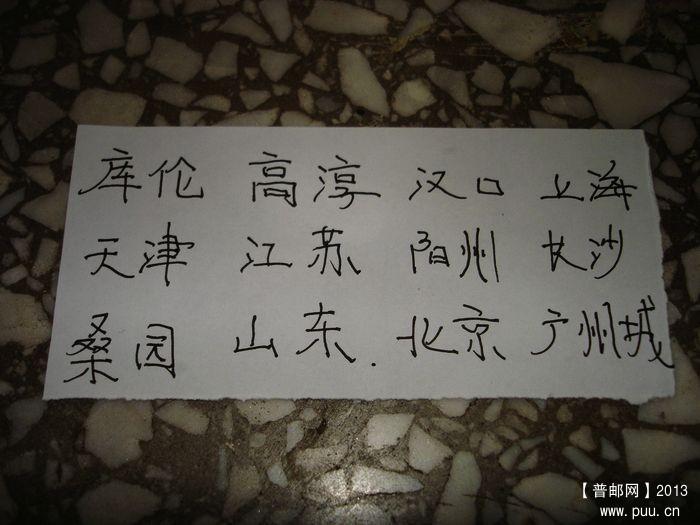 库伦 高淳 汉口 上海
天津 江苏 阳州 长沙
桑园 山东. 北京 广州城
【普邮网】2013
www.puu.cn